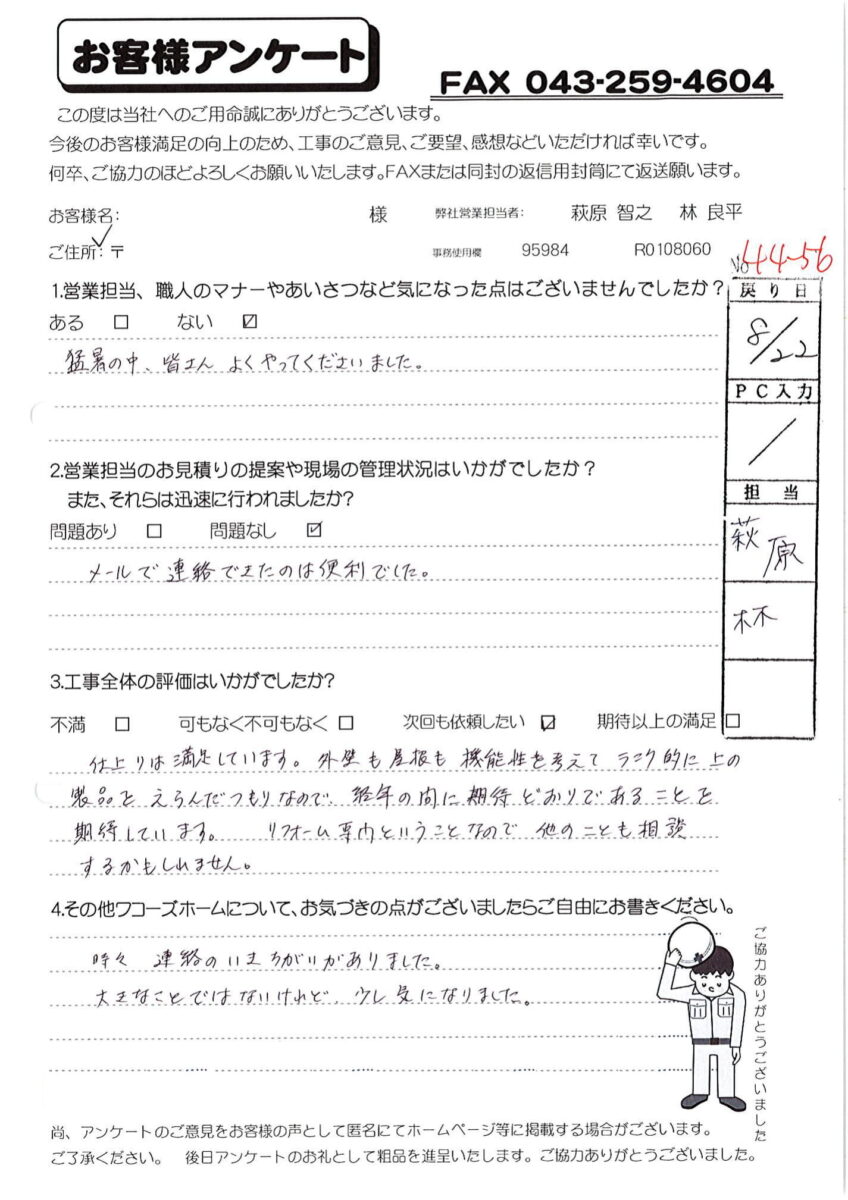 お客様アンケート
FAX 043-259-4604
この度は当社へのご用命誠にありがとうございます。
今後のお客様満足の向上のため、工事のご意見、ご要望、感想などいただければ幸いです。
何卒、ご協力のほどよろしくお願いいたします。FAXまたは同封の返信用封筒にて返送願います。
お客様名: 様 弊社営業担当者: 萩原 智之 林 良平
ご住所:〒 事務使用欄 95984 R0108060
No 44-56
1.営業担当、職人のマナーやあいさつなど気になった点はございませんでしたか?
ある □ ない ☑
猛暑の中、皆さん よくやってくださいました。
戻り日
8/22
PC入力
/
担当
萩原
林
2.営業担当のお見積りの提案や現場の管理状況はいかがでしたか?
また、それらは迅速に行われましたか?
問題あり □ 問題なし ☑
メールで連絡できたのは便利でした。
3.工事全体の評価はいかがでしたか?
不満 □ 可もなく不可もなく □ 次回も依頼したい ☑ 期待以上の満足 □
仕上りは満足しています。外壁も屋根も機能性を考えて ランク的に上の
製品を えらんだつもりなので、経年の間に期待どおりであることを
期待しています。 リフォーム専門ということなので 他のことも相談
するかもしれません。
4.その他ワコーズホームについて、お気づきの点がございましたらご自由にお書きください。
時々 連絡のいきちがいがありました。
大きなことではないけれど、少し気になりました。
ご協力ありがとうございました
尚、アンケートのご意見をお客様の声として匿名にてホームページ等に掲載する場合がございます。
ご了承ください。 後日アンケートのお礼として粗品を進呈いたします。ご協力ありがとうございました。